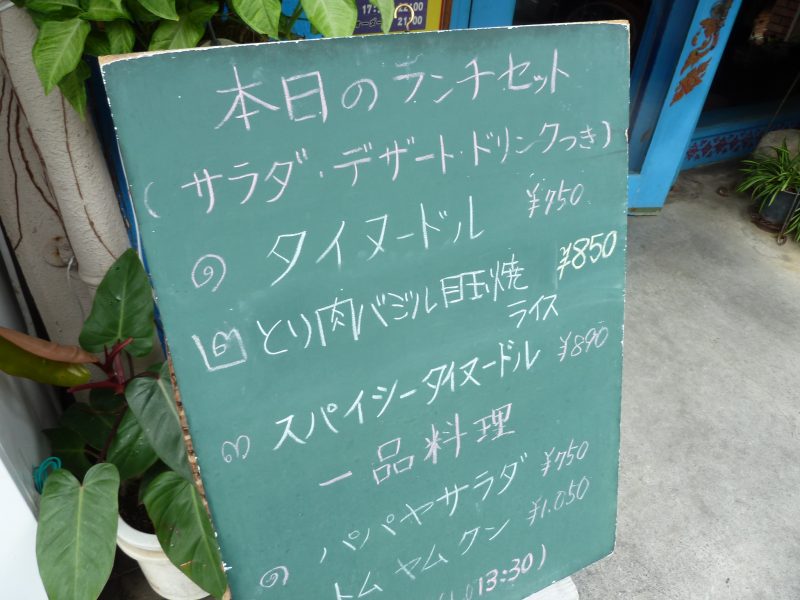 本日のランチセット
(サラダ・デザート・ドリンクつき)
๑ タイヌードル ¥750
๒ とり肉バジル目玉焼 ¥850
ライス
๓ スパイシータイヌードル ¥890
一品料理
パパヤサラダ ¥750
トムヤムクン ¥1.050
13:30)